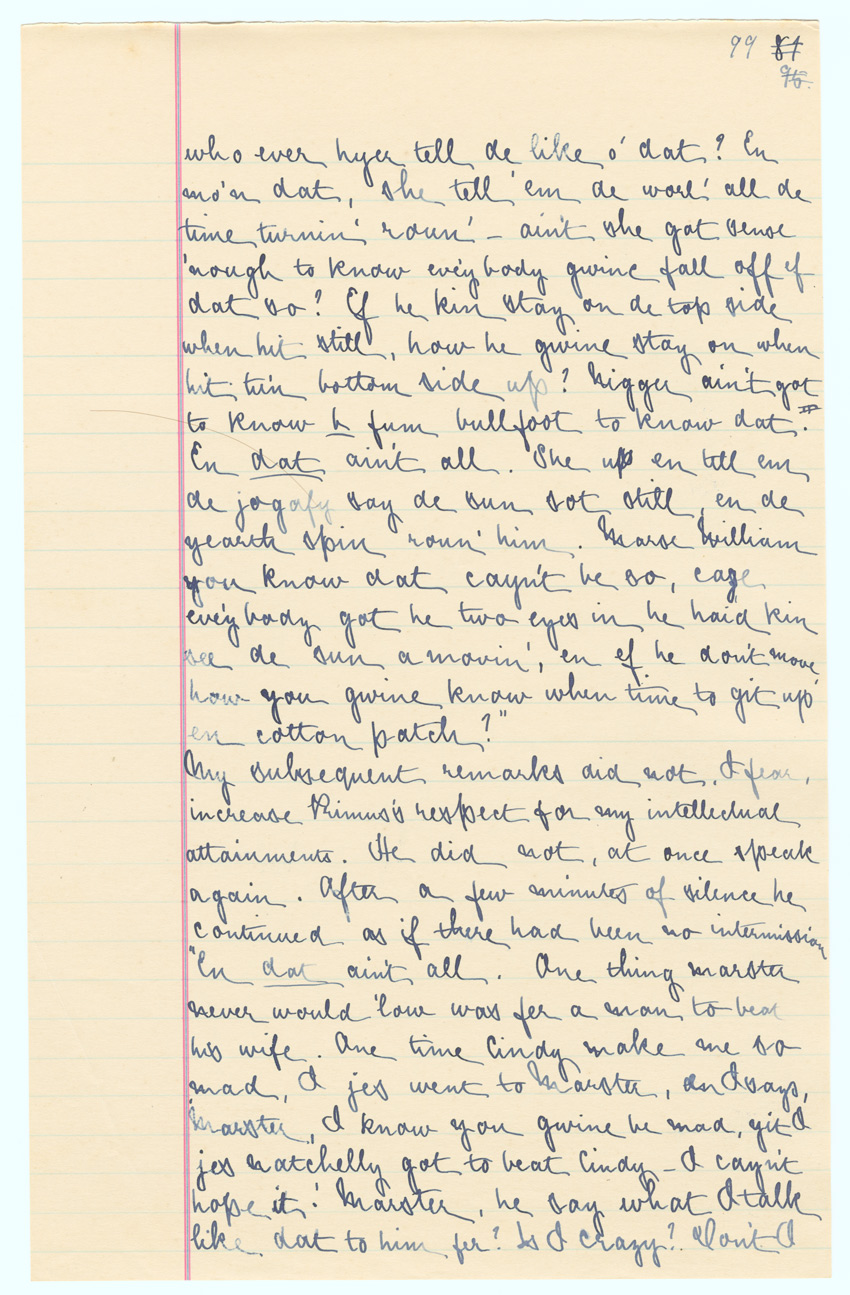 99 81
96.
who ever hyer tell de like o' dat? En
mo'n dat, she tell 'em de worl' all de
time turnin' roun' – ain't she got sense
'nough to know ev'ybody gwine fall off ef
dat so? Ef he kin stay on de top side
when hit still, how he gwine stay on when
hit tu'n bottom side up? Nigger ain't got
to know b fum bullfoot to know dat.
En dat ain't all. She up en tell em
de jogafy say de sun sot still, en de
yearth spin roun' him. Marse William
you know dat cayn't be so, caze
ev'ybody got he two eyes in he haid kin
see de sun a movin', en ef he don't move
how you gwine know when time to git up
en cotton patch?"
My subsequent remarks did not, I fear,
increase Primus's respect for my intellectual
attainments. He did not, at once speak
again. After a few minutes of silence he
continued as if there had been no intermission
"En dat ain't all. One thing marster
never would 'low was fer a man to beat
his wife. One time Cindy make me so
mad, I jes went to Marster, en I says,
'Marster, I know you gwine be mad, yit I
jes natchelly got to beat Cindy – I cayn't
hope it.' Marster, he say what I talk
like dat to him fer? Is I crazy? Don't I